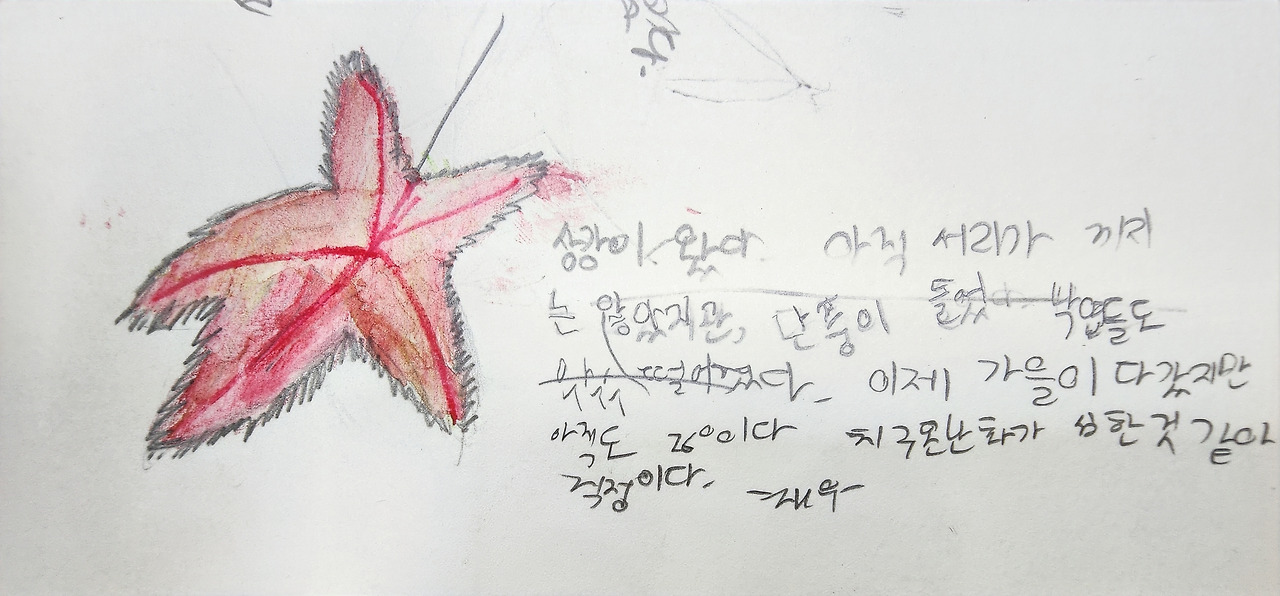 상강이 왔다. 아직 서리가 끼지
는 않았지만, 단풍이 들었 낙엽들도
떨어졌다. 이제 가을이 다갔지만
아직도 26°이다 지구온난화가 심한것 같아
걱정이다. -재우-